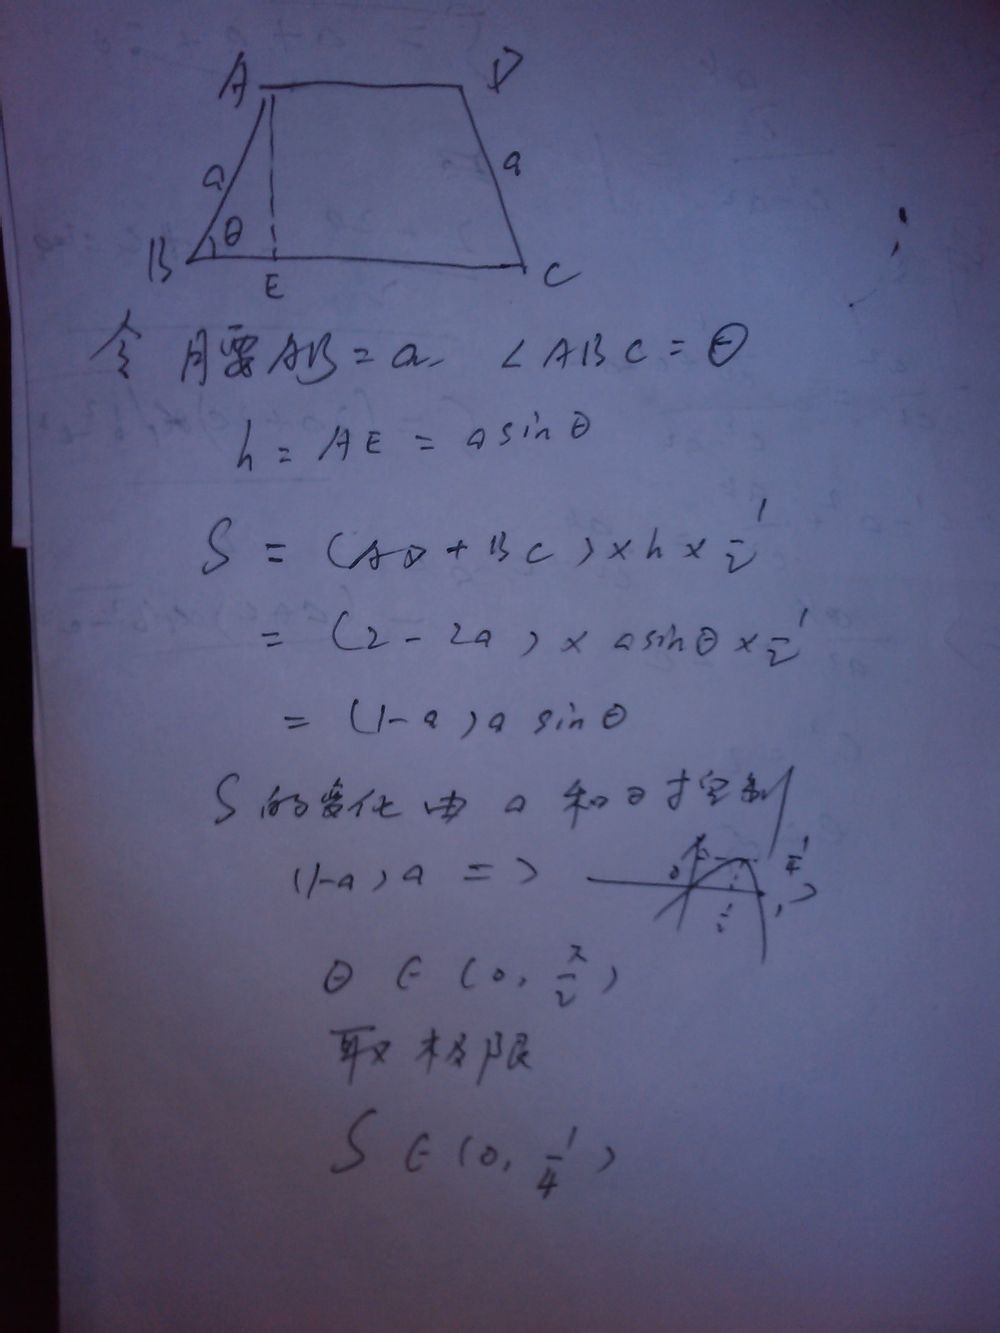 A D
a a
B θ E C
令 腰AB=a ∠ABC=θ
h = AE = a sinθ
S = (AD+BC)×h×1/2
= (2-2a)×a sinθ×1/2
= (1-a)a sinθ
S的变化由a和θ控制
(1-a)a => 0 1/2 1 1/4
θ∈(0, π/2)
取极限
S∈(0, 1/4)